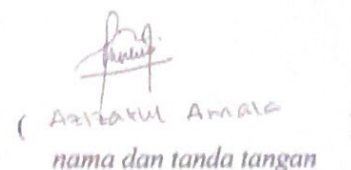 ( Azizatul Amala
nama dan tanda tangan